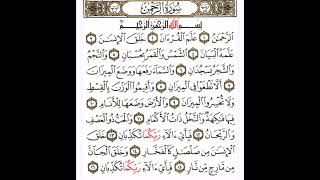 سُورَةُ الرَّحْمَٰن
بِسْمِ اللَّهِ الرَّحْمَٰنِ الرَّحِيمِ
الرَّحْمَٰنُ ١ عَلَّمَ الْقُرْءَانَ ٢ خَلَقَ الْإِنسَٰنَ ٣
عَلَّمَهُ الْبَيَانَ ٤ الشَّمْسُ وَالْقَمَرُ بِحُسْبَانٍ ٥ وَالنَّجْمُ
وَالشَّجَرُ يَسْجُدَانِ ٦ وَالسَّمَآءَ رَفَعَهَا وَوَضَعَ الْمِيزَانَ
٧ أَلَّا تَطْغَوْا فِي الْمِيزَانِ ٨ وَأَقِيمُوا الْوَزْنَ بِالْقِسْطِ
وَلَا تُخْسِرُوا الْمِيزَانَ ٩ وَالْأَرْضَ وَضَعَهَا لِلْأَنَامِ ١٠
فِيهَا فَٰكِهَةٌ وَالنَّخْلُ ذَاتُ الْأَكْمَامِ ١١ وَالْحَبُّ ذُو الْعَصْفِ
وَالرَّيْحَانُ ١٢ فَبِأَيِّ ءَالَآءِ رَبِّكُمَا تُكَذِّبَانِ ١٣ خَلَقَ
الْإِنسَٰنَ مِن صَلْصَٰلٍ كَالْفَخَّارِ ١٤ وَخَلَقَ الْجَآنَّ
مِن مَّارِجٍ مِّن نَّارٍ ١٥ فَبِأَيِّ ءَالَآءِ رَبِّكُمَا تُكَذِّبَانِ ١٦